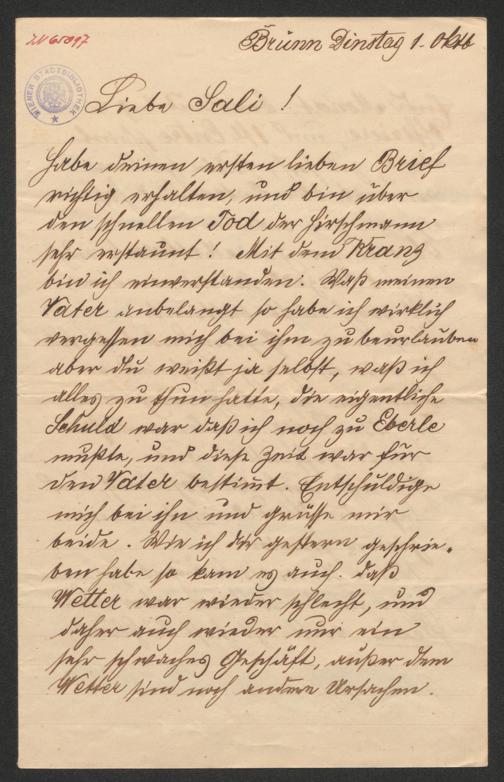 Brünn Dinstag 1. Oktb
Liebe Sali!
habe deinen ersten lieben Brief
richtig erhalten, und bin über
den schnellen Tod der Hirschmann
sehr erstaunt! Mit dem Kranz
bin ich einverstanden. Waß meinen
Vater anbelangt so habe ich wirklich
vergessen mich bei ihm zu beurlauben
aber du weißt ja selbst, waß ich
alles zu thun hatte, die eigentliche
Schuld war daß ich noch zu Eberle
mußte, und diese Zeit war für
den Vater bestimt. Entschuldige
mich bei ihn und grüsse mir
beide. Wie ich dir gestern geschrie-
ben habe so kam es auch. daß
Wetter war wieder schlecht, und
daher auch wieder nur ein
sehr schwaches Geschäft, außer dem
Wetter sind noch andere Ursachen.
WIENER STADTBIBLIOTHEK